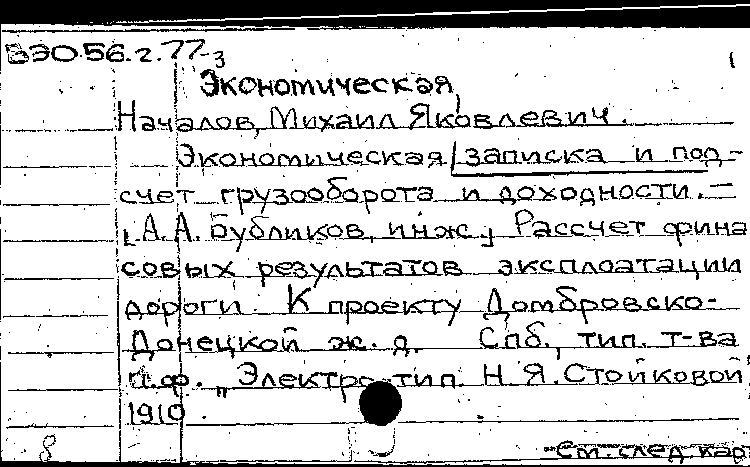 ВЭО.56.г.77-3
1
Экономическая
Началов, Михаил Яковлевич.
Экономическая записка и под-
счет грузооборота и доходности. —
[А.А. Бубликов, инж.] Рассчет фина
совых результатов эксплоатации
дороги. К проекту Домбровско-
Донецкой ж. д. Спб., тип. т-ва
п.ф. "Электро-тип. Н. Я. Стойковой
1910.
8
См. след. кар